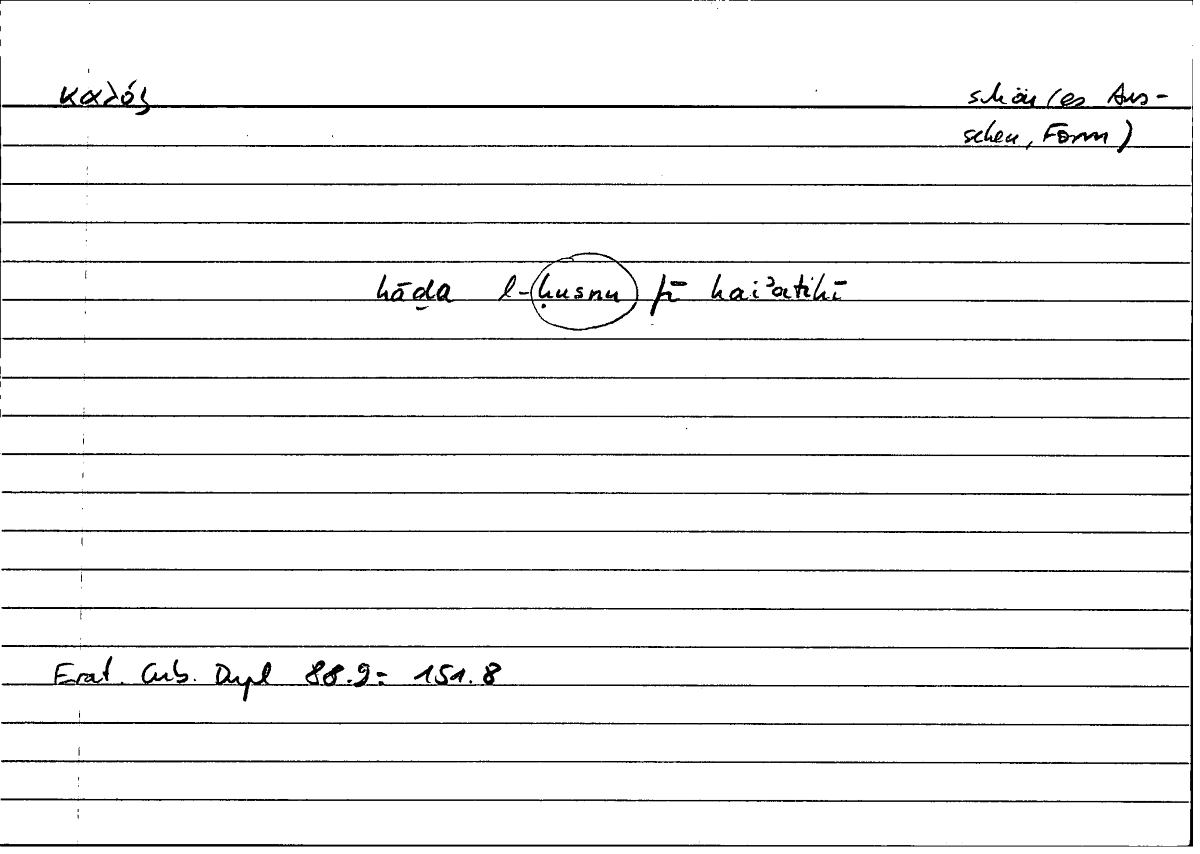 καλός schön(es Aus-
sehen, Form)
hāḏa l-ḥusnu fī hai'atihī
Erat. Cub. Dupl 88.9 = 151.8